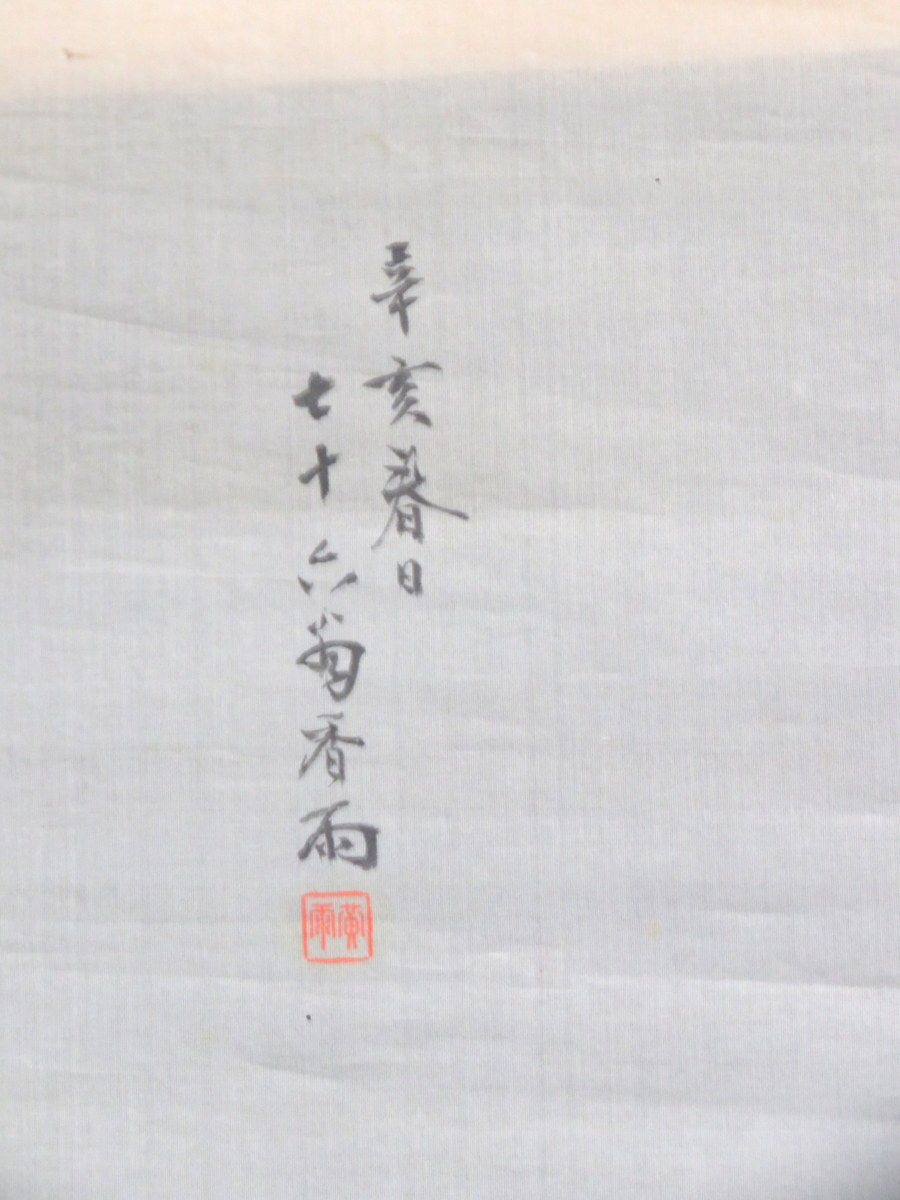 辛亥春日
七十六翁香雨